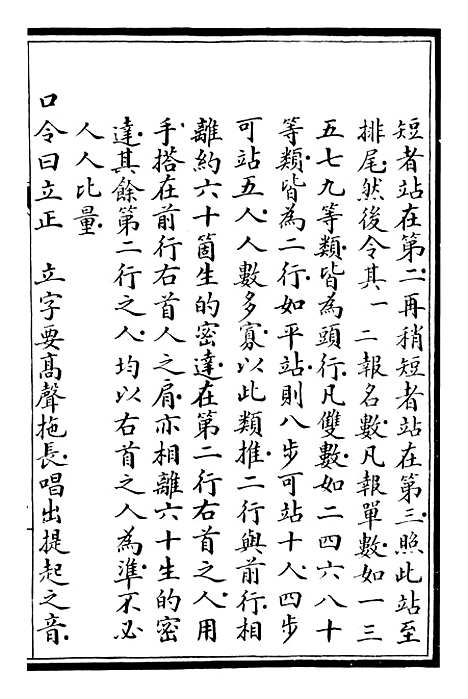 短者站在第二再稍短者站在第三照此站至
排尾然後令其一二報名數凡報單數如一三
五七九等類皆為頭行凡雙數如二四六八十
等類皆為二行如平站則八步可站十人四步
可站五人人數多寡以此類推二行與前行相
離約六十箇生的密達在第二行右首之人用
手搭在前行右首人之肩亦相離六十生的密
達其餘第二行之人均以右首之人為準不必
人人比量
口令曰立正　立字要高聲拖長唱出提起之音